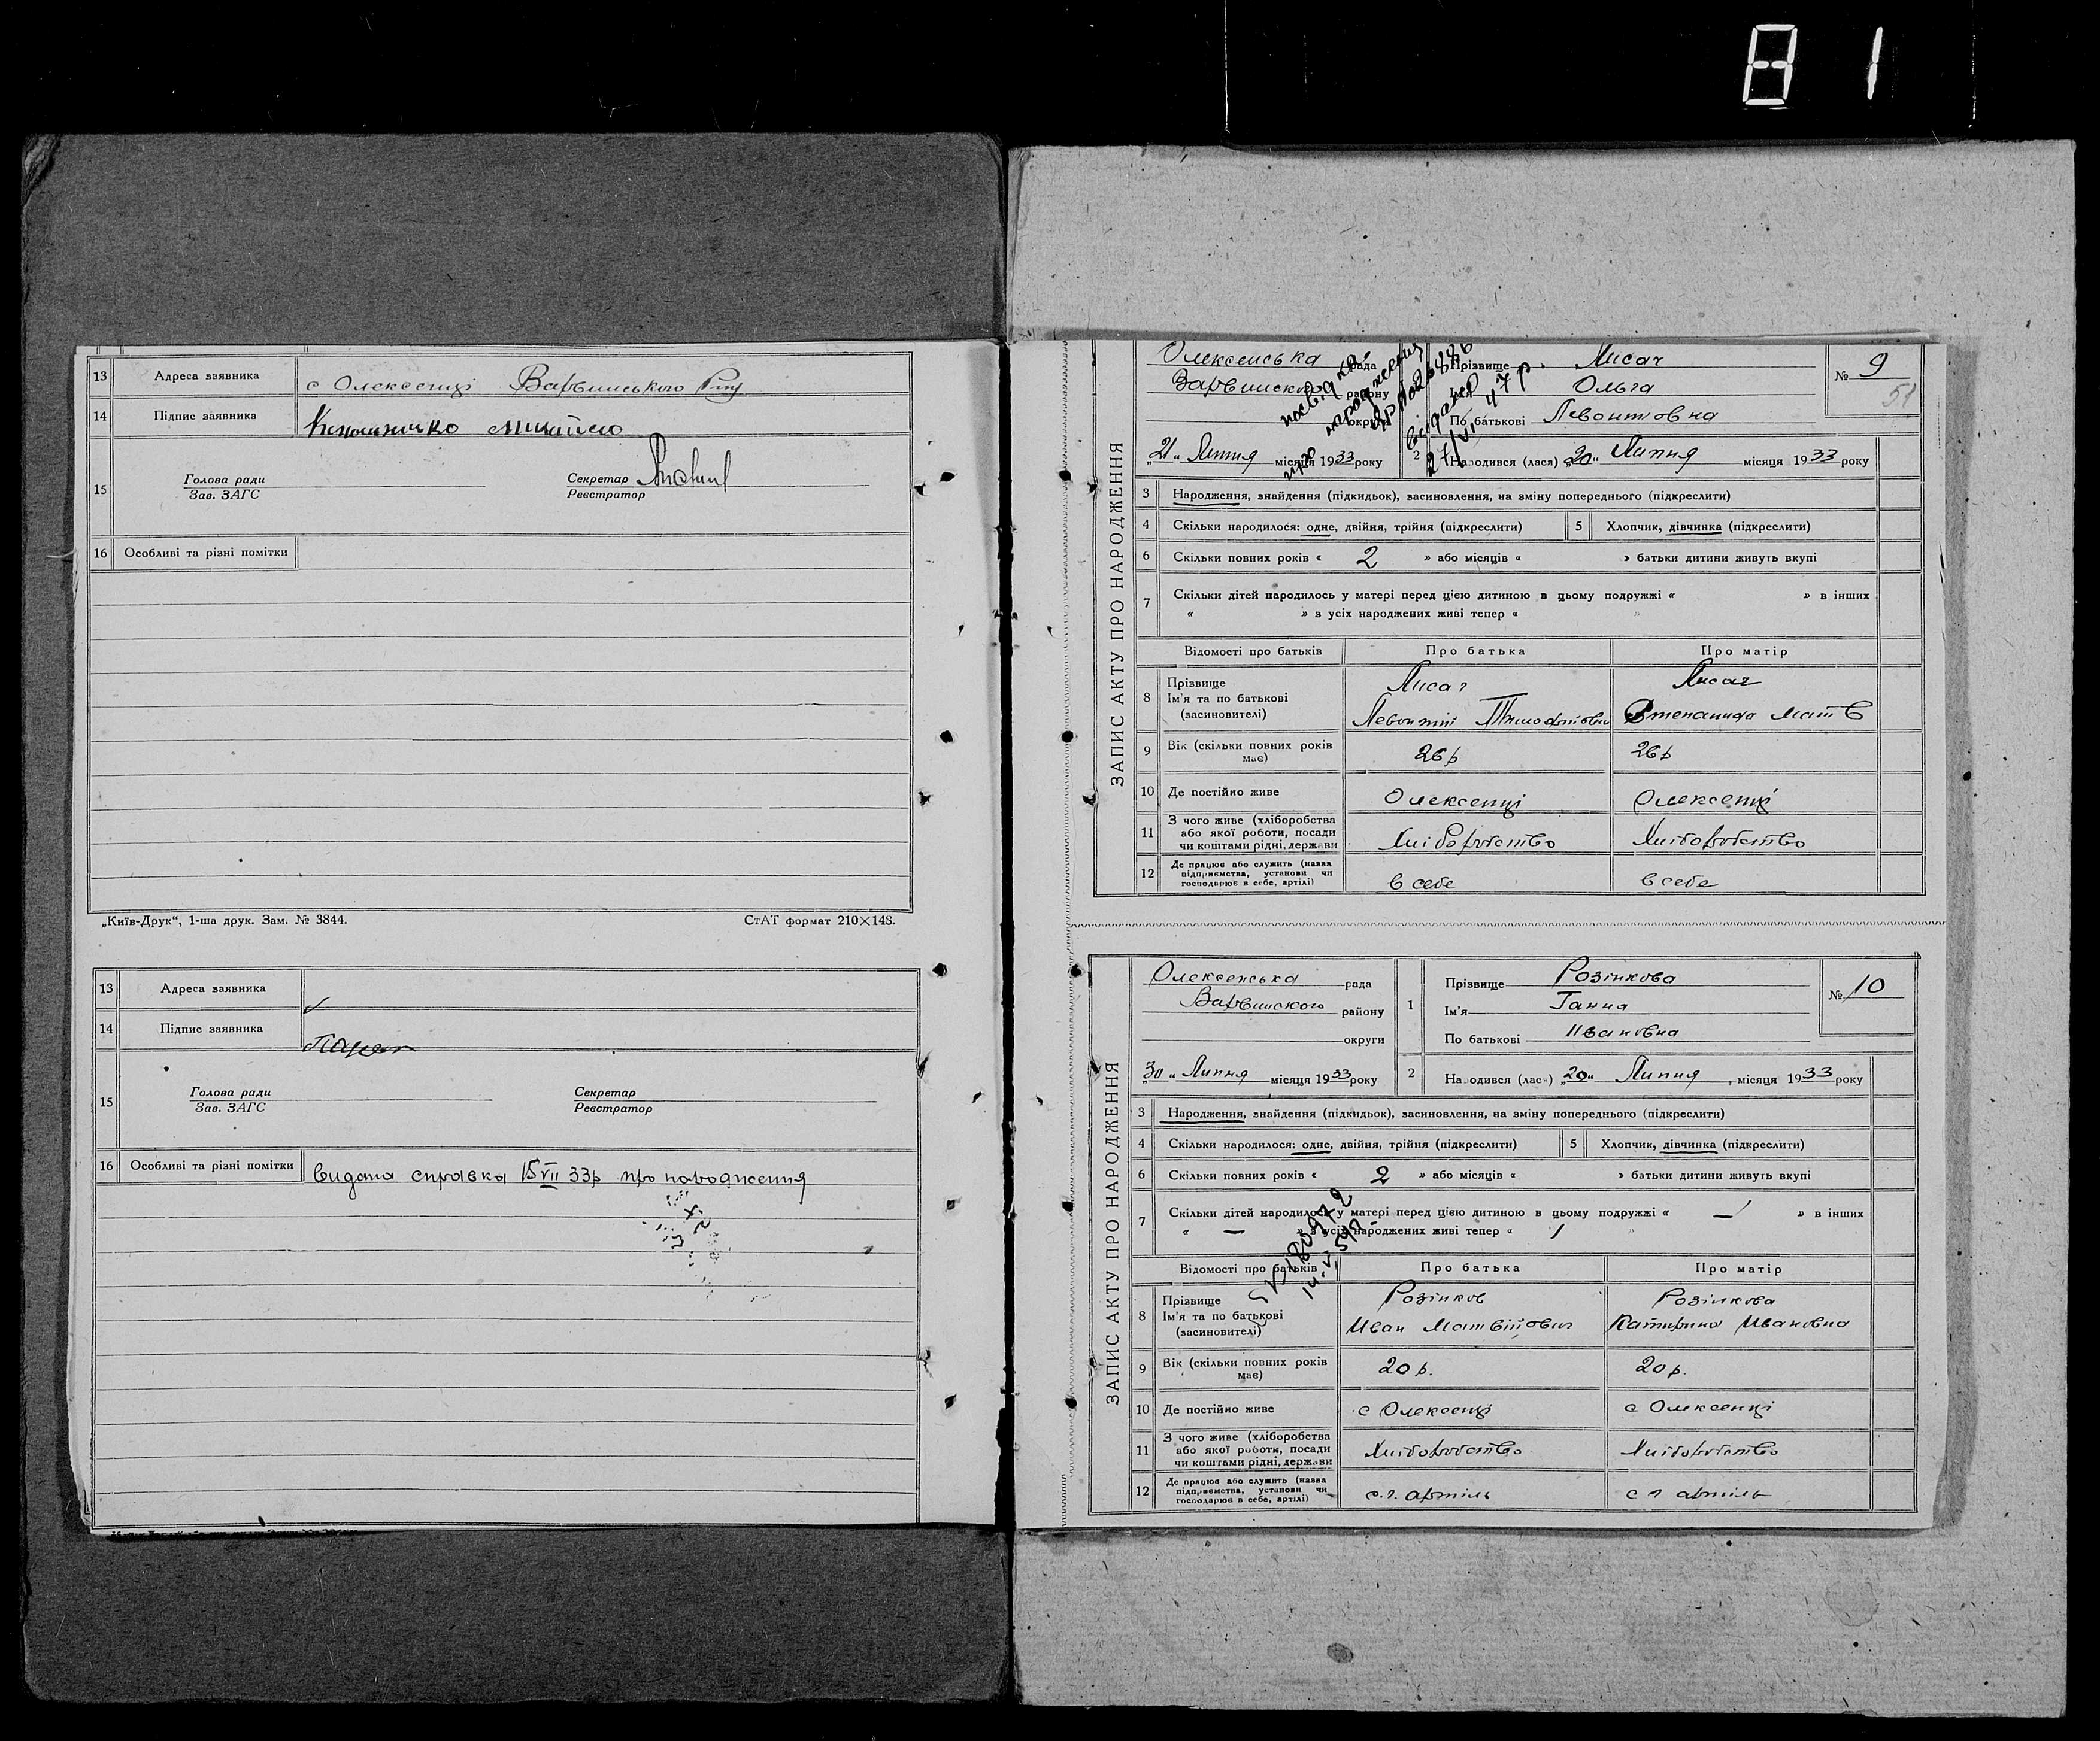 81
13 Адреса заявника с Олексенці Варвинського Р-ну
14 Підпис заявника
15 Голова ради Секретар
Зав. ЗАГС Реєстратор
16 Особливі та різні помітки
„Київ-Друк“, 1-ша друк. Зам. № 3844. СтАТ формат 210×148.
13 Адреса заявника
14 Підпис заявника
15 Голова ради Секретар
Зав. ЗАГС Реєстратор
16 Особливі та різні помітки видана справка 15 VII 33р про народження
ЗАПИС АКТУ ПРО НАРОДЖЕННЯ
Олексенська рада
Варвинского району
округи
Прізвище Лисач
Ім'я Ольга
По батькові Левонтовна
№ 9
51
посвідка
про народження
видано
27/VI 47 р.
„21“ Липня місяця 1933 року
2 Народився (лася) „20“ Липня місяця 1933 року
3 Народження, знайдення (підкидьок), засиновлення, на зміну попереднього (підкреслити)
4 Скільки народилося: одне, двійня, трійня (підкреслити) 5 Хлопчик, дівчинка (підкреслити)
6 Скільки повних років « 2 » або місяців « » батьки дитини живуть вкупі
7 Скільки дітей народилось у матері перед цією дитиною в цьому подружжі « » в інших
« » з усіх народжених живі тепер « »
Відомості про батьків Про батька Про матір
8 Прізвище Лисач Лисач
Ім'я та по батькові
(засиновителі) Левонтій Тимофійович Степанида Матв
9 Вік (скільки повних років має) 26р 26р
10 Де постійно живе Олексенці Олексенці
11 З чого живе (хліборобства
або якої роботи, посади
чи коштами рідні, держави Хліборобство Хліборобство
12 Де працює або служить (назва
підприємства, установи чи
господарює в себе, артілі) в себе в себе
ЗАПИС АКТУ ПРО НАРОДЖЕННЯ
Олексенська рада
Варвинского району
округи
1 Прізвище Розінкова
Ім'я Ганна
По батькові Ивановна
№ 10
„30“ Липня місяця 1933 року
2 Народився (лась) „20“ Липня місяця 1933 року
3 Народження, знайдення (підкидьок), засиновлення, на зміну попереднього (підкреслити)
4 Скільки народилося: одне, двійня, трійня (підкреслити) 5 Хлопчик, дівчинка (підкреслити)
6 Скільки повних років « 2 » або місяців « » батьки дитини живуть вкупі
7 Скільки дітей народилось у матері перед цією дитиною в цьому подружжі « — » в інших
« — » з усіх народжених живі тепер « 1 »
Відомості про батьків Про батька Про матір
8 Прізвище Розінков Розінкова
Ім'я та по батькові
(засиновителі) Иван Матвійович Катирина Ивановна
9 Вік (скільки повних років має) 20 р. 20 р.
10 Де постійно живе с Олексенці с Олексенці
11 З чого живе (хліборобства
або якої роботи, посади
чи коштами рідні, держави Хліборобство Хліборобство
12 Де працює або служить (назва
підприємства, установи чи
господарює в себе, артілі) с.г. артіль с г артіль